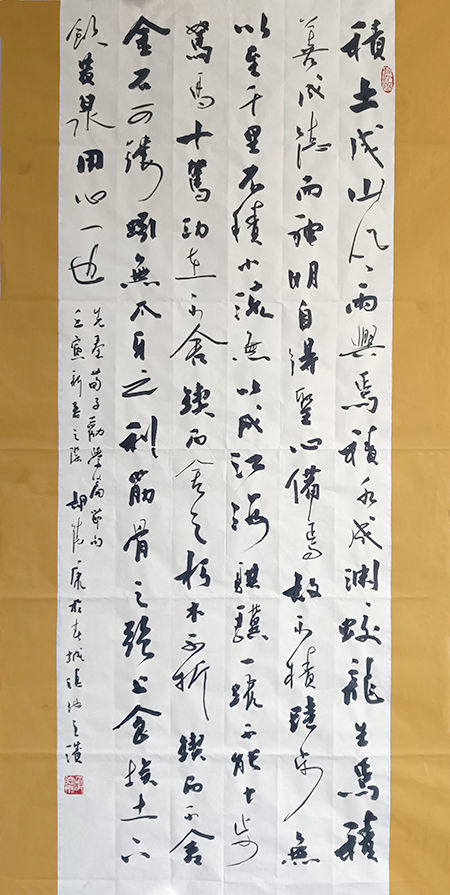 積土成山风雨興焉積水成渊蛟龍生焉積
善成德而神明自得聖心備焉故不積跬步無
以至千里不積小流無以成江海騏驥一躍不能十步
駑馬十駕功在不舍鍥而舍之朽木不折鍥而不舍
金石可鏤蚓無爪牙之利筋骨之强上食埃土下
飲黄泉用心一也
先秦荀子勸學篇節句
壬寅新春之際於春城之濱